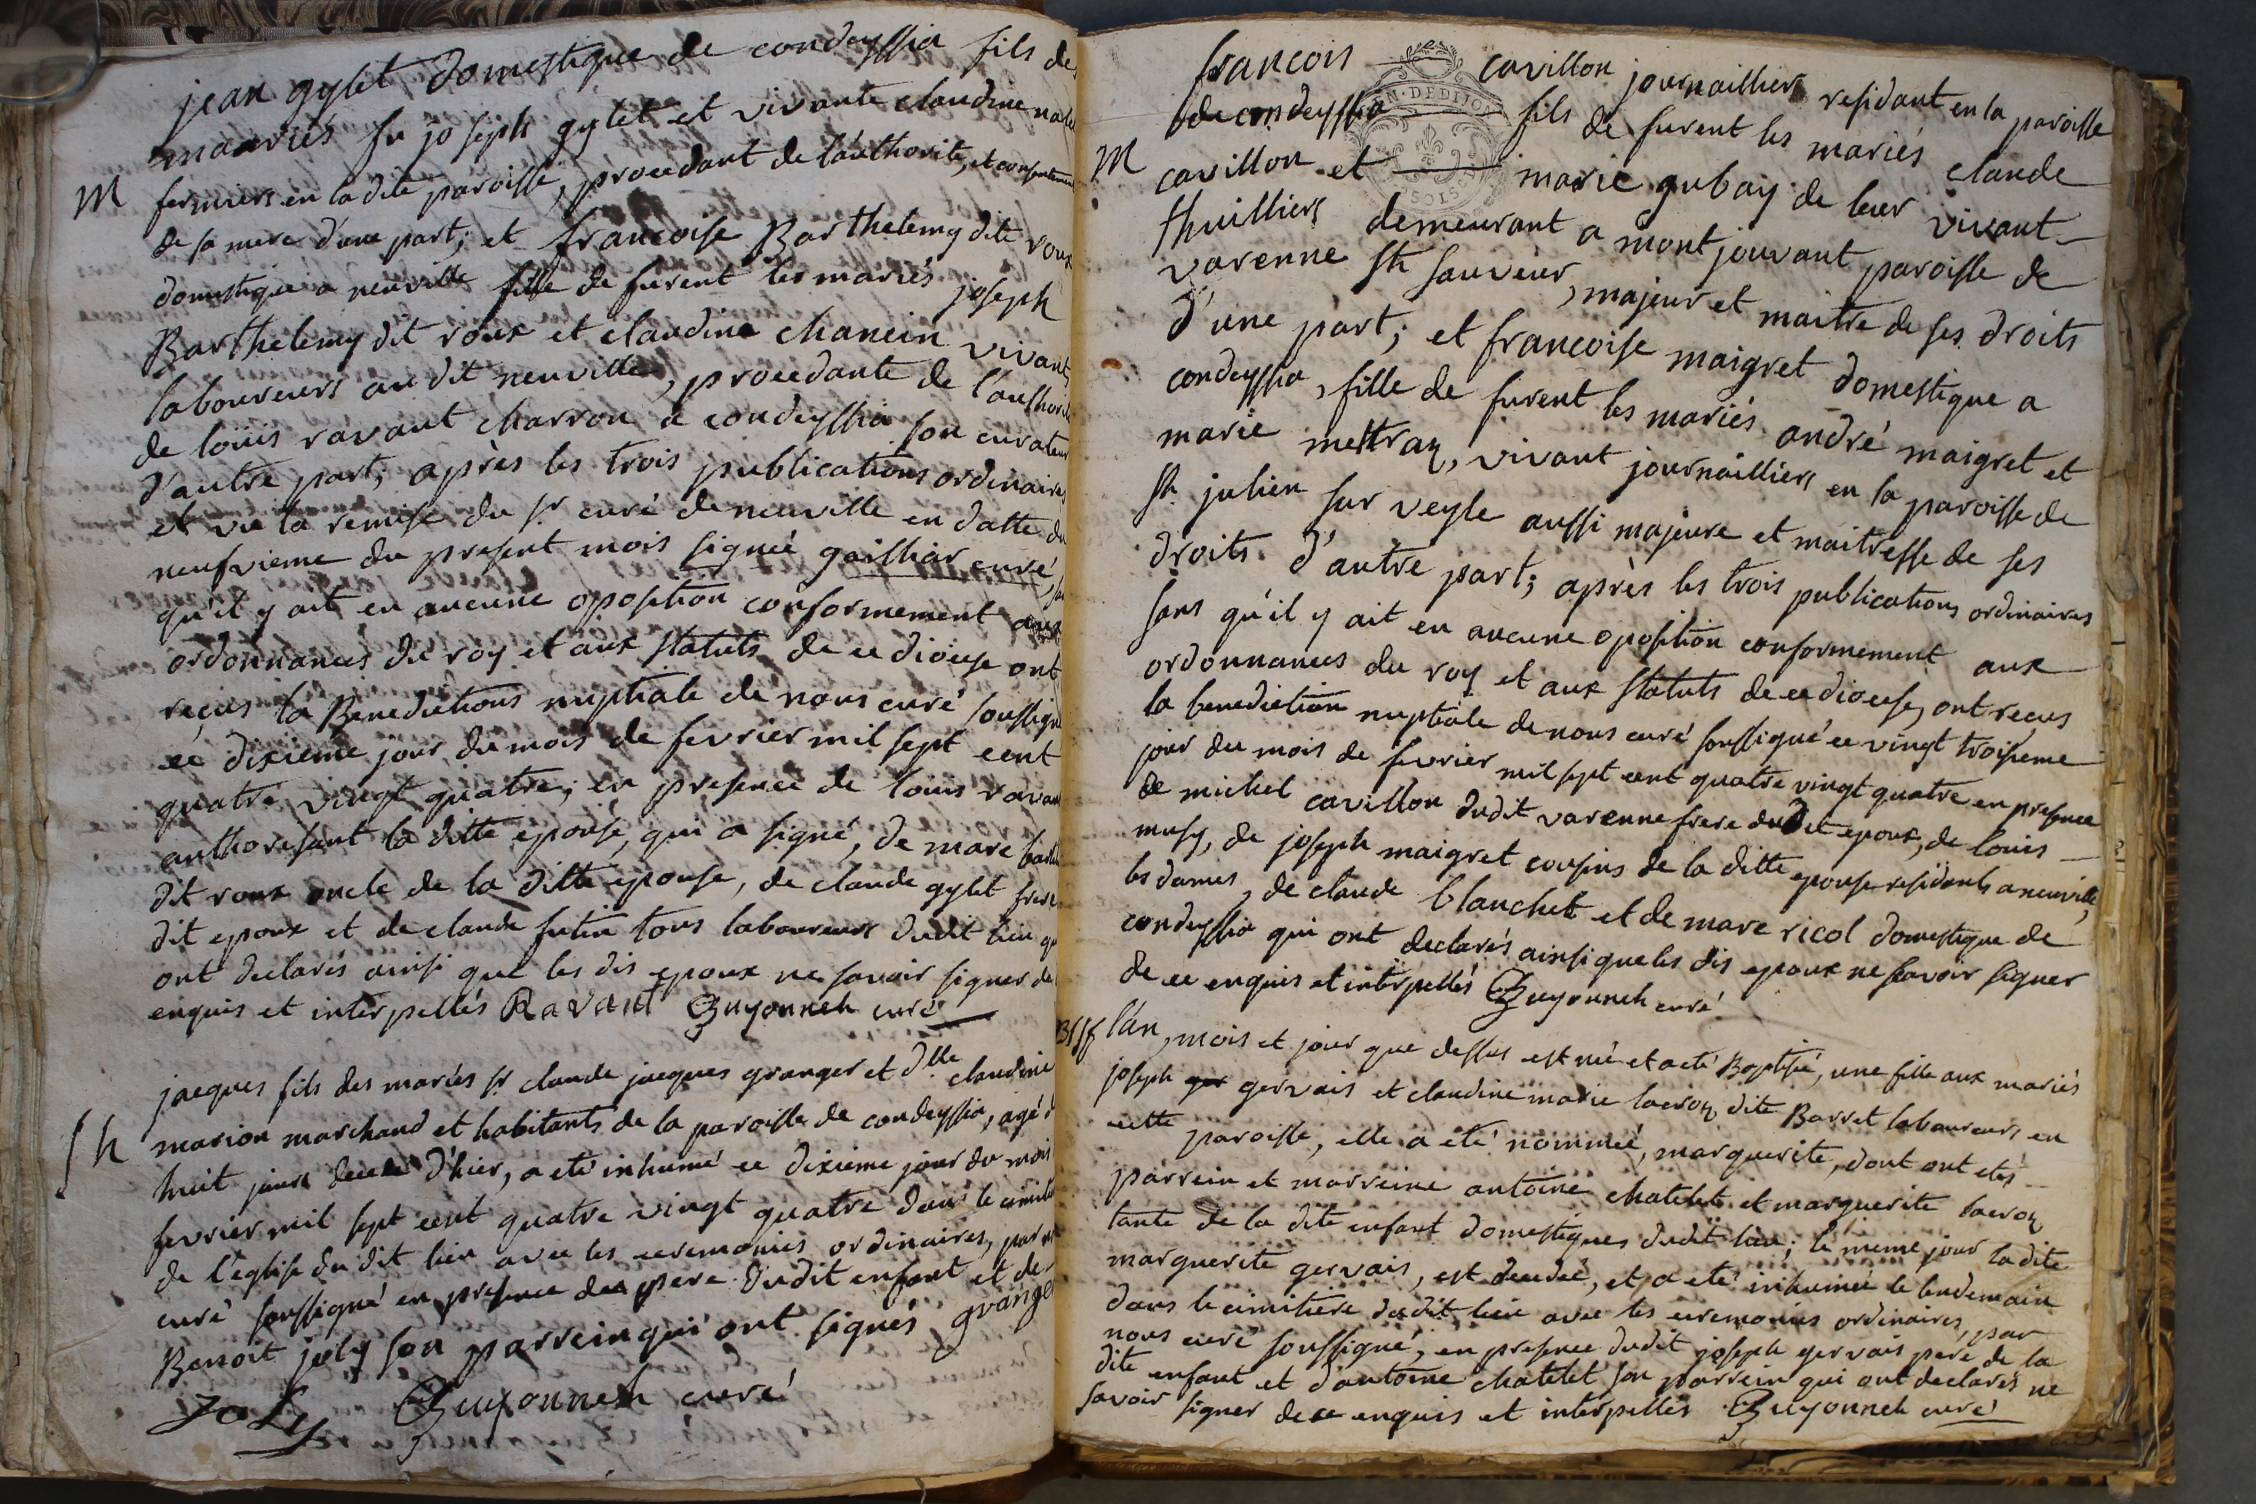 jean gylet domestique de condeyssia fils des
maariés fu joseph gylet et vivante claudine
M fermiers en la dite paroisse, procedant de l'authorité, et consentement
de sa mere d'une part; et francoise Barthelemy dite roux
domestique a neuville fille de furent les mariés joseph
Barthelemy dit roux et claudine chanein vivants
laboureurs au dit neuville, procedante de l'authorité
de louis ravant charron a condeyssia son curateur
d'autre part; après les trois publications ordinaires
et vu la remise du sr curé de neuville en datte du
neufvieme du present mois signeé gailliar curé,
qu'il y ait eu aucune oposition conformement aux
ordonnances du roy et aux statuts de ce diocese ont
reçus la Benedictions nuptiale de nous curé soussigné
ce dixieme jour du mois de fevrier mil sept cent
quatre vingt quatre; en presence de louis ravant
authorisant la ditte epouse, qui a signé, de marc
dit roux oncle de la ditte epouse, de claude gylet frere
dit epoux et de claude futin tous laboureurs dudit lieu qui
ont declarés ainsi que les dis epoux ne savoir signer de
enquis et interpellés Ravant Guyonneh curé
jacques fils des mariés sr claude jacques granger et dlle claudine
Sh marion marchand et habitants de la paroisse de condeyssia, agé de
huit jours decedé d'hier, a eté inhumé ce dixieme jour du mois
fevrier mil sept cent quatre vingt quatre dans le cimitiere
de l'eglise du dit lieu avec les ceremonies ordinaires, par
curé soussigné en presence du pere dudit enfant et de
Benoit joly son parrein qui ont signés granger
Joly Guyonneh curé
francois cavillon journailliers residant en la paroisse
de condeyssia fils de furent les mariés claude
M cavillon et marie gubay de leur vivant
thuilliers demeurant a montjouvant paroisse de
varenne st sauveur, majeur et maitre de ses droits
d'une part; et francoise maigret domestique a
condeyssia, fille de furent les mariés andré maigret et
marie mettraz, vivant journailliers en la paroisse de
st julien sur veyle aussi majeure et maitresse de ses
droits d'autre part; après les trois publications ordinaires
sans qu'il y ait eu aucune oposition conformement aux
ordonnances du roy et aux statuts de ce diocese, ont reçus
la benediction nuptiale de nous curé soussigné ce vingt troisieme
jour du mois de fevrier mil sept cent quatre vingt quatre en presence
de michel cavillon dudit varenne frere dudit epoux, de louis
musy, de joseph maigret cousins de la ditte epouse residants a neuville
les dames, de claude blanchet et de marc ricol domestique de
condeyssia qui ont declarés ainsi que les dis epoux ne savoir signer
de ce enquis et interpellés Guyonneh curé
l'an, mois et jour que dessus est né et a eté Baptisé, une fille aux mariés
joseph ger gervais et claudine marie lacroz dite Barret laboureurs en
cette paroisse, elle a eté nommeé, marguerite, dont ont etés
parrein et marreine antoine chatelet et marguerite lacroz
tante de la dite enfant domestiques dudit lieu; le meme jour la dite
marguerite gervais, est decedeé, et a eté inhumeé le lendemain
dans le cimitiere dudit lieu avec les ceremonies ordinaires, par
nous curé soussigné, en presence dudit joseph gervais pere de la
dite enfant et d'antoine chatelet son parrein qui ont declarés ne
savoir signer de ce enquis et interpellés Guyonneh curé